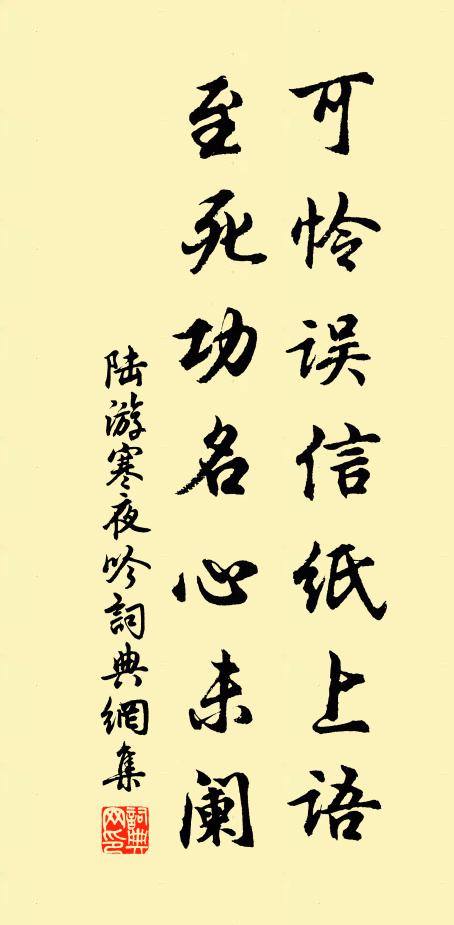 可怜误信纸上语
至死功名心未阑
陆游寒夜吟詞典網集
詞典
网印